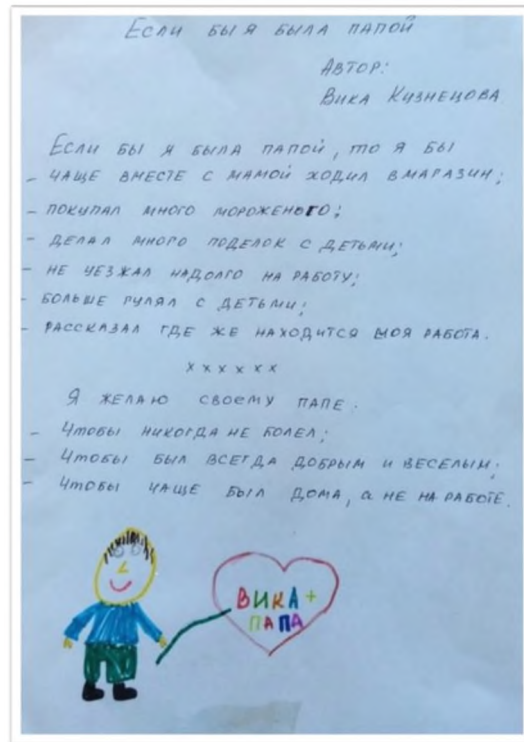 Если бы я была папой
Автор:
Вика Кузнецова
Если бы я была папой, то я бы
– чаще вместе с мамой ходил в магазин;
– покупал много мороженого;
– делал много поделок с детьми;
– не уезжал надолго на работу;
– больше гулял с детьми;
– рассказал где же находится моя работа.
х х х х х х
Я желаю своему папе:
– Чтобы никогда не болел;
– Чтобы был всегда добрым и веселым;
– Чтобы чаще был дома, а не на работе.
ВИКА +
ПАПА